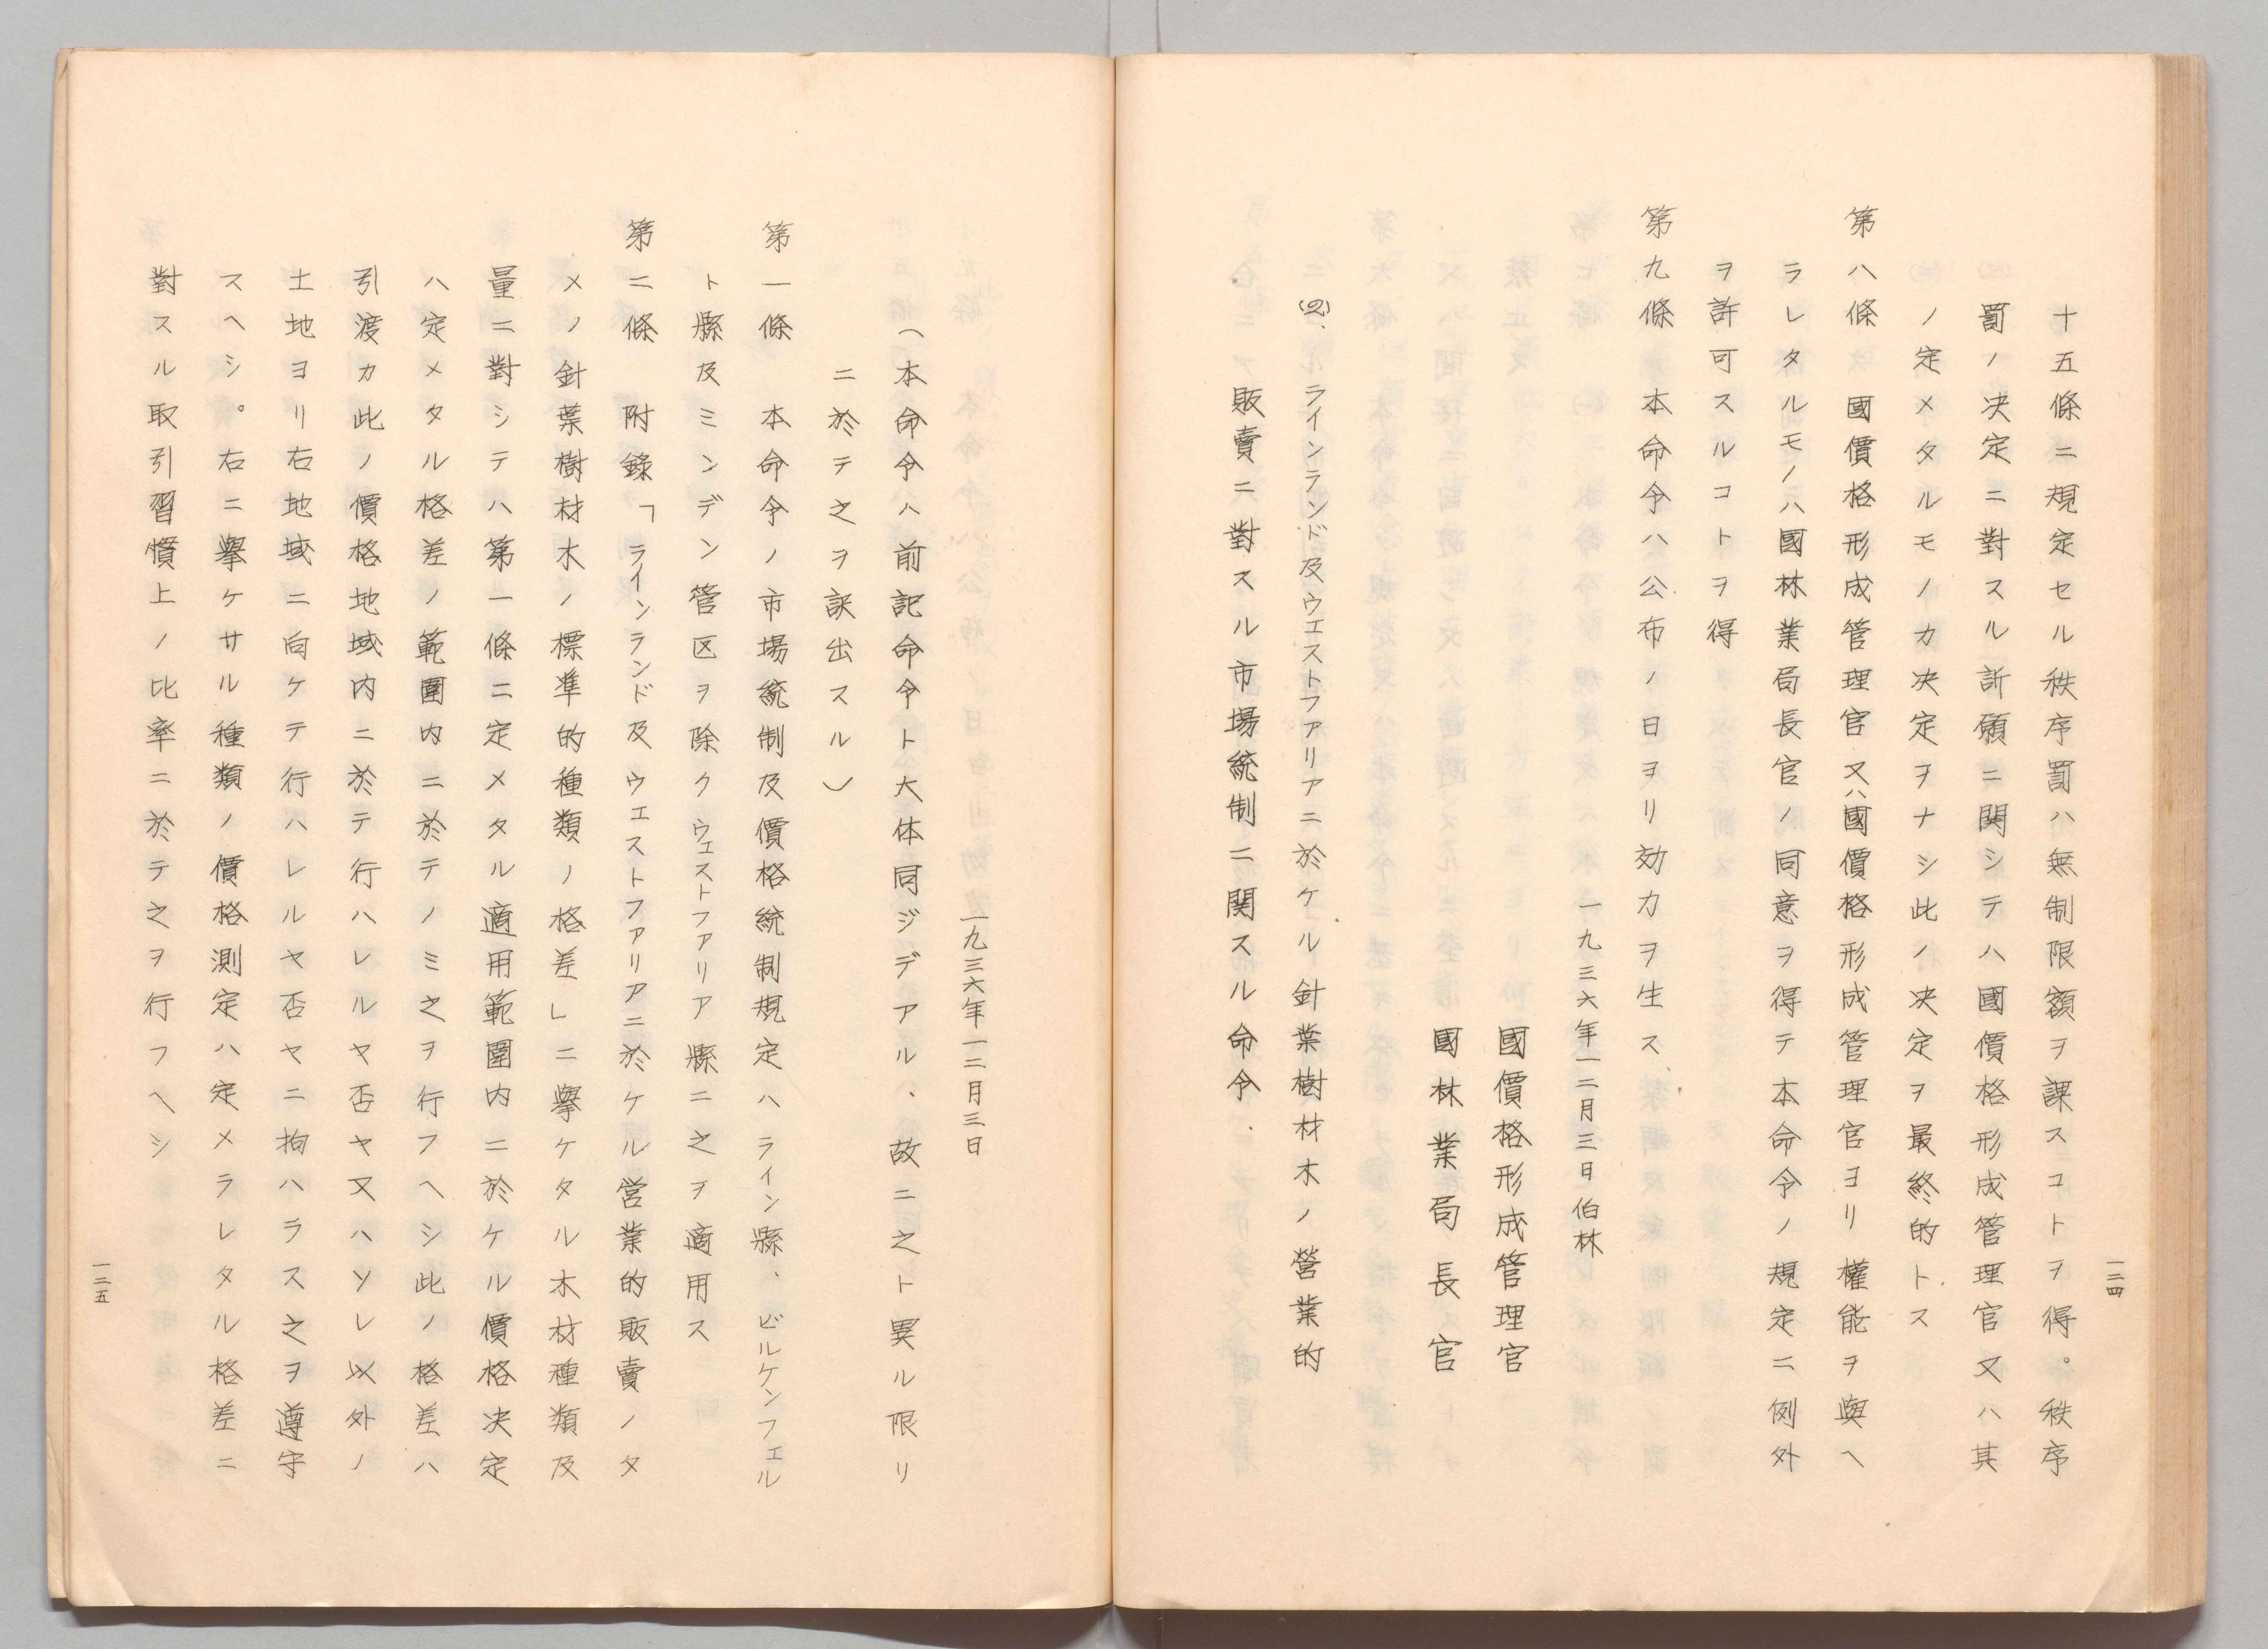 十五條ニ規定セル秩序罰ハ無制限額ヲ課スコトヲ得。秩序
罰ノ決定ニ對スル訴願ニ関シテハ國價格形成管理官又ハ其
ノ定メタルモノカ決定ヲナシ此ノ決定ヲ最終的トス
第八條　國價格形成管理官又ハ國價格形成管理官ヨリ權能ヲ與ヘ
ラレタルモノハ國林業局長官ノ同意ヲ得テ本命令ノ規定ニ例外
ヲ許可スルコトヲ得
第九條　本命令ハ公布ノ日ヨリ効力ヲ生ス、
一九三六年一二月三日　伯林
國價格形成管理官
國林業局長官
(四)、ラインランド及ウエストファリアニ於ケル針葉樹材木ノ營業的
販賣ニ對スル市場統制ニ関スル命令．
一二四
一九三六年一二月三日
（本命令ハ前記命令ト大体同ジデアル、故ニ之ト異ル限リ
ニ於テ之ヲ訳出スル）
第一條　本命令ノ市場統制及價格統制規定ハライン縣、ビルケンフェル
ト縣及ミンデン管区ヲ除クウェストファリア縣ニ之ヲ適用ス
第二條　附錄「ラインランド及ウエストファリアニ於ケル営業的販賣ノタ
メノ針葉樹材木ノ標準的種類ノ格差」ニ擧ケタル木材種類及
量ニ對シテハ第一條ニ定メタル適用範圍内ニ於ケル價格決定
ハ定メタル格差ノ範圍内ニ於テノミ之ヲ行フヘシ此ノ格差ハ
引渡カ此ノ價格地域内ニ於テ行ハレルヤ否ヤ又ハソレ以外ノ
土地ヨリ右地域ニ向ケテ行ハレルヤ否ヤニ拘ハラス之ヲ遵守
スヘシ。右ニ擧ケサル種類ノ價格測定ハ定メラレタル格差ニ
對スル取引習慣上ノ比率ニ於テ之ヲ行フヘシ
一二五